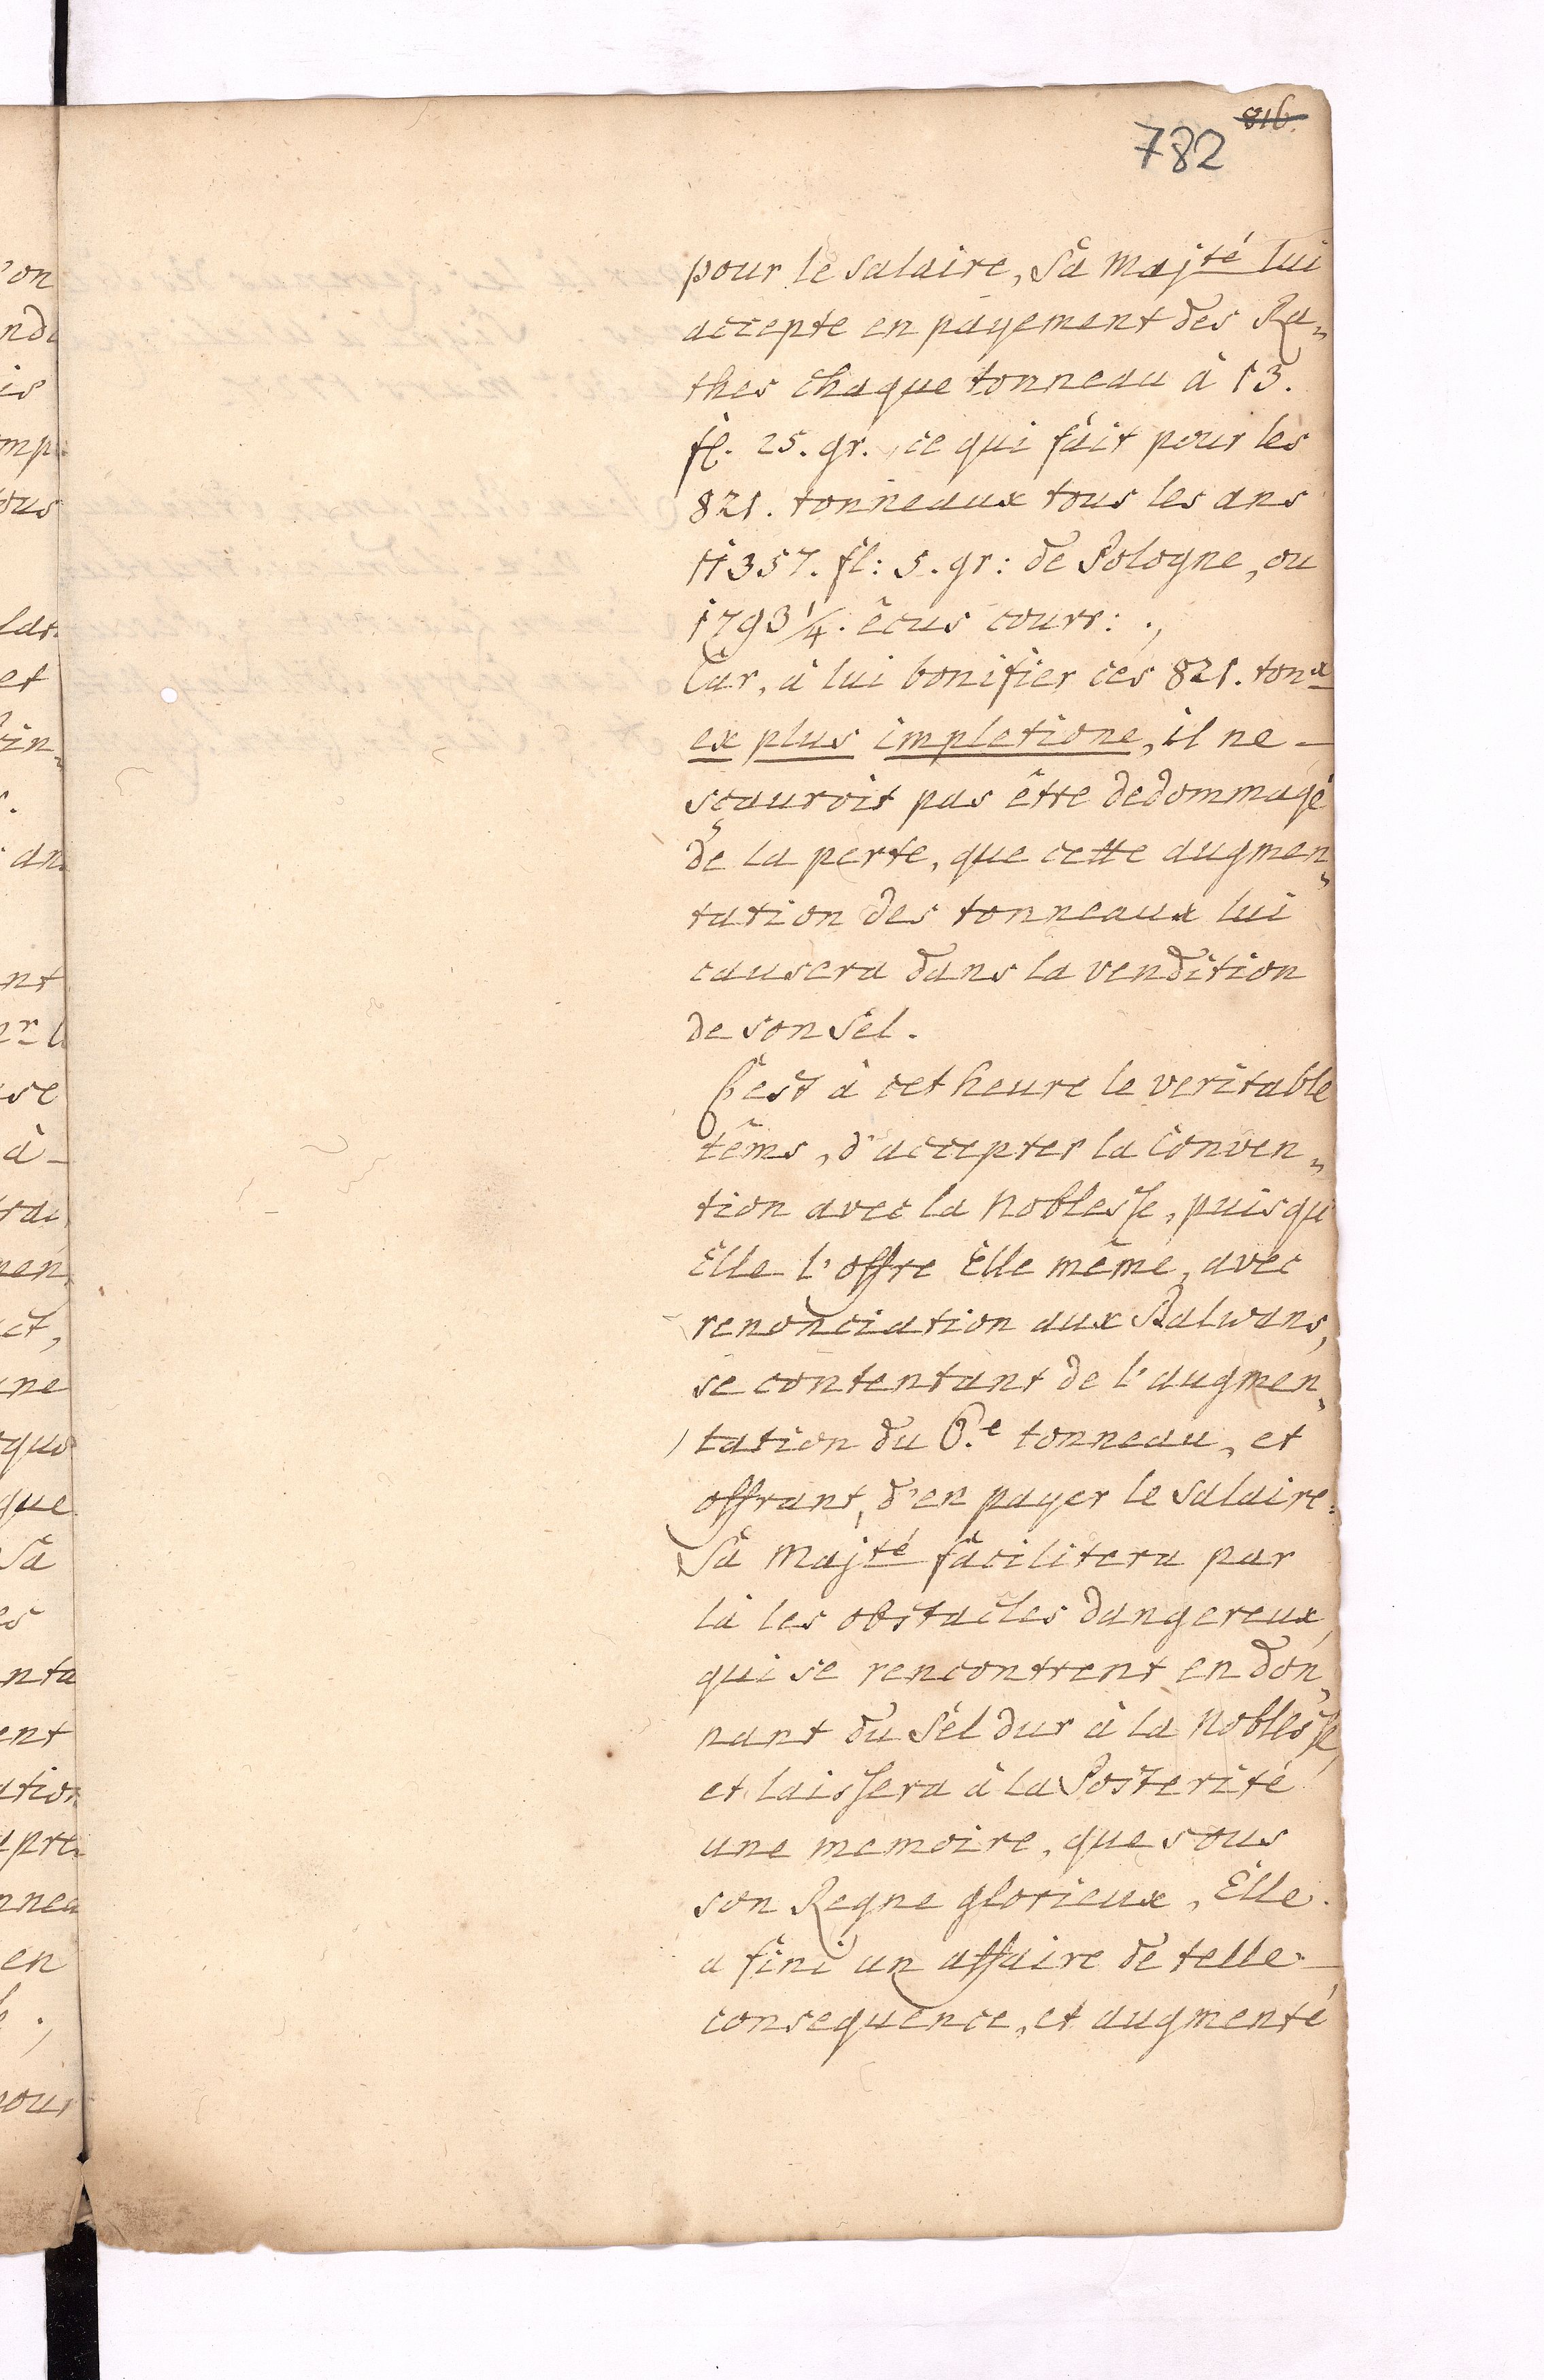 816.
782
pour le salaire, Sa Majté lui
accepte en payement des Ra„
thes chaque tonneau à 13.
fl. 25. gr. ce qui fait pour les
821. tonneaux tous les ans
11357. fl: 5. gr: de Pologne, ou
1793 1/4. êcus cour: .,
Car, à lui bonifier ces 821. tonx
ex plus impletione, il ne –
sçauroit pas être dedommagé
de la perte, que cette augmen„
tation des tonneaux lui
causera dans la vendition
de son Sel.
C'est à cet heure le veritable
têms, d'accepter la Conven„
tion avec la Noblesse, puisqu'
Elle l'offre Elle même, avec
renonciation aux Balwans,
se contentant de l'augmen„
tation du 6.e tonneau, et
offrant, d'en payer le Salaire.
Sa Majté facilitera par
là les obstacles dangereux,
qui se rencontrent en don„
nant du Sel dur à la Noblesse,
et laissera à la Posterité
une memoire, que sous
son Regne glorieux, Elle
a fini un affaire de telle –
consequence, et augmenté